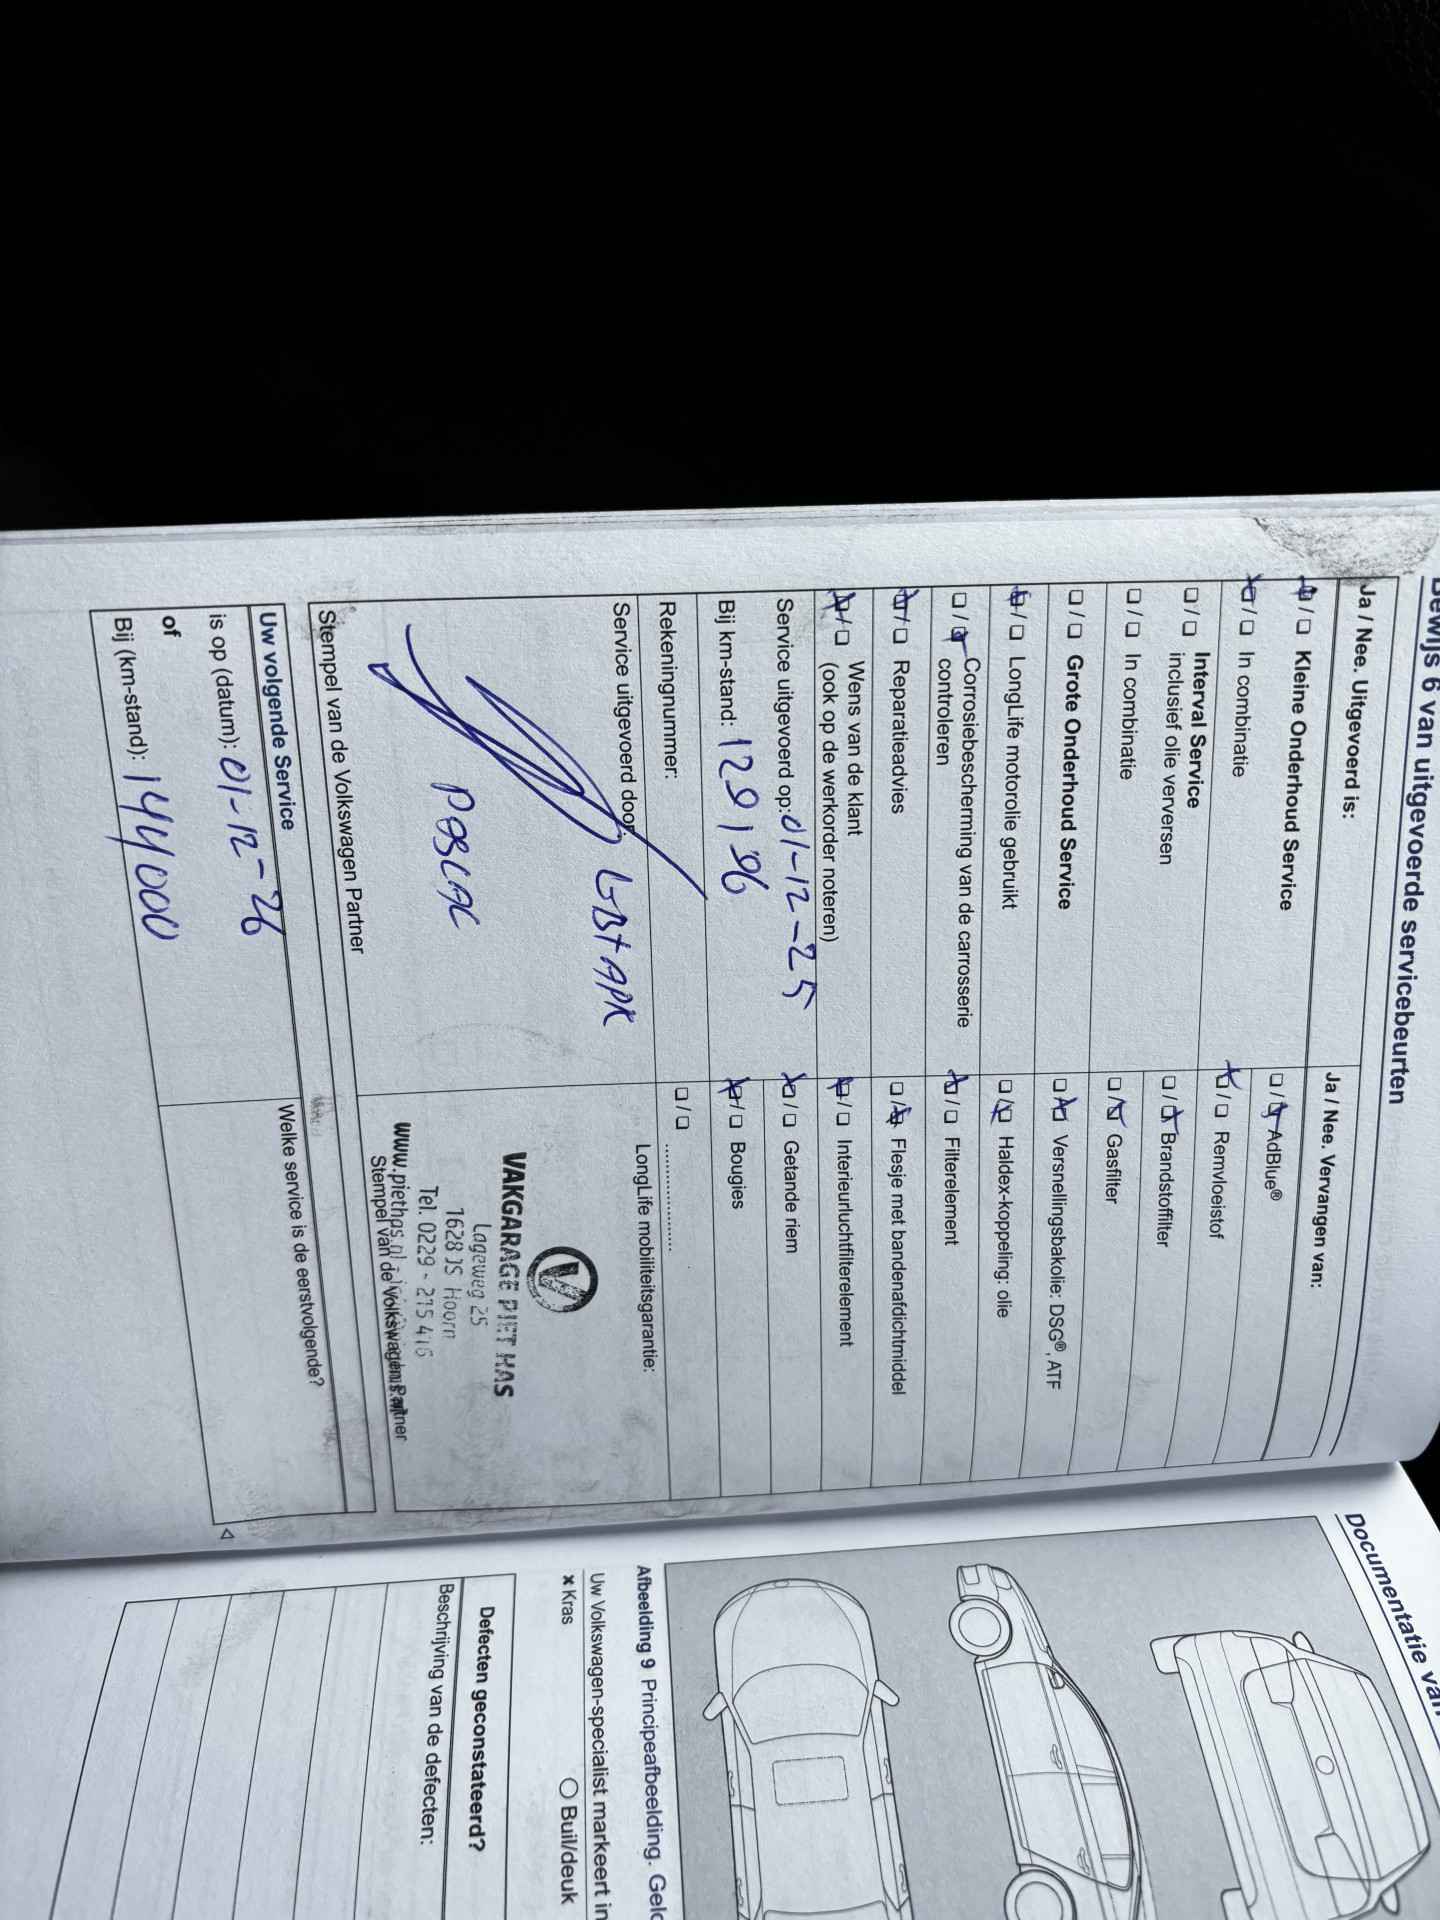 Bewijs 6 van uitgevoerde servicebeurten
Ja / Nee. Uitgevoerd is:
Kleine Onderhoud Service
In combinatie
Interval Service
inclusief olie verversen
In combinatie
Grote Onderhoud Service
LongLife motorolie gebruikt
Corrosiebescherming van de carrosserie
controleren
Reparatieadvies
Wens van de klant
(ook op de werkorder noteren)
Service uitgevoerd op: 01-12-25
Bij km-stand:
Rekeningnummer:
Service uitgevoerd door:
GB+APK
Stempel van de Volkswagen Partner
Ja / Nee. Vervangen van:
AdBlue®
Remvloeistof
Brandstoffilter
Gasfilter
Versnellingsbakolie: DSG®, ATF
Haldex-koppeling: olie
Filterelement
Flesje met bandenafdichtmiddel
Interieurluchtfilterelement
Getande riem
Bougies
....................
LongLife mobiliteitsgarantie:
VAKGARAGE PIET HAS
Lageweg 25
1628 JS Hoorn
Tel. 0229 - 215 416
www.piethas.nl
Stempel van de Volkswagen Partner
Uw volgende Service
is op (datum): 01-12-26
of
Bij (km-stand): 144000
Welke service is de eerstvolgende?
Documentatie van
Afbeelding 9 Principeafbeelding.
Uw Volkswagen-specialist markeert in
x Kras
Buil/deuk
Defecten geconstateerd?
Beschrijving van de defecten: